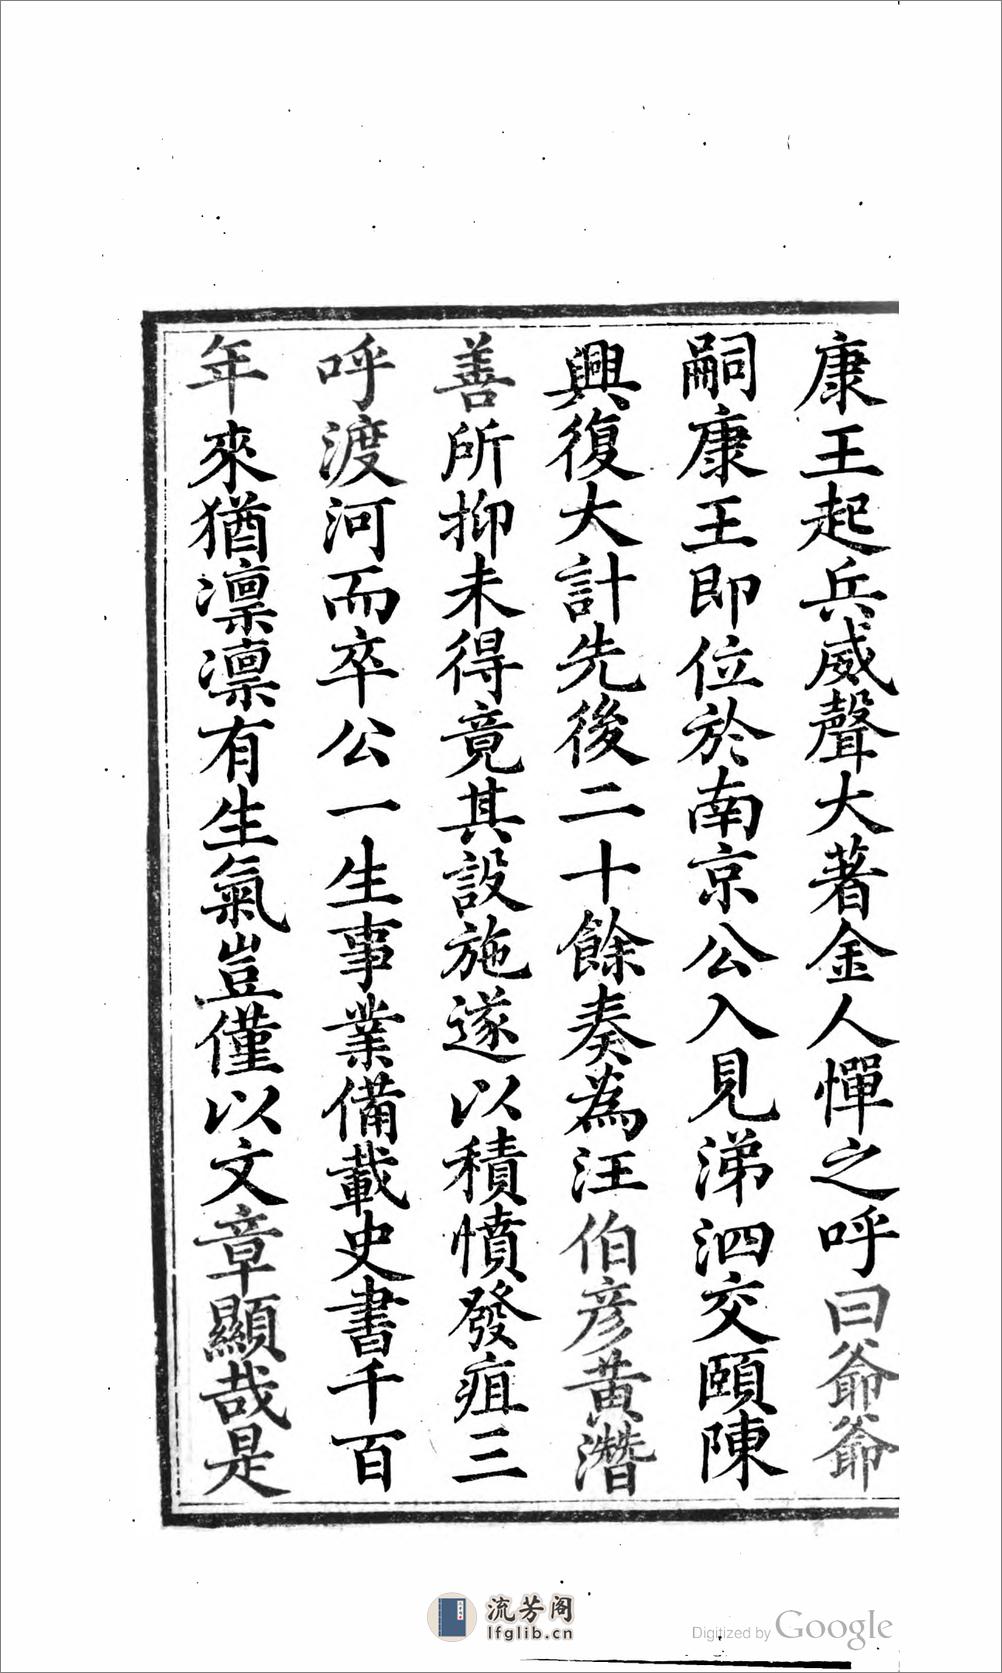 康王起兵威聲大著金人憚之呼曰爺爺
嗣康王即位於南京公入見涕泗交頤陳
興復大計先後二十餘奏為汪伯彥黃潛
善所抑未得竟其設施遂以積憤發疽三
呼渡河而卒公一生事業備載史書千百
年來猶凛凛有生氣豈僅以文章顯哉是
流芳阁
lfglib.cn
Digitized by Google